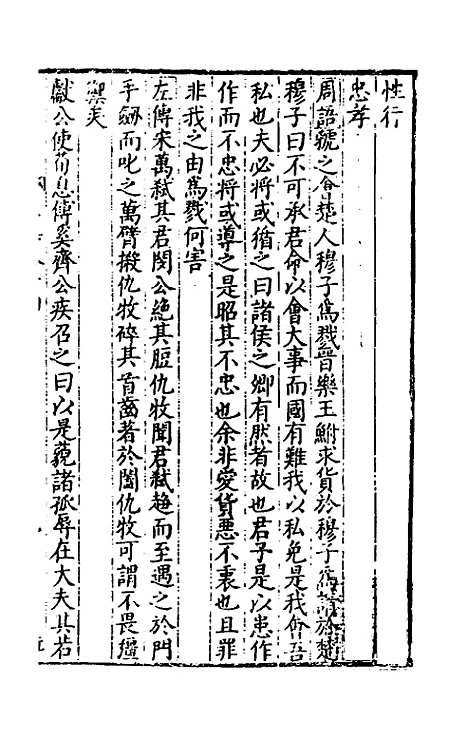 性行
忠孝
周語虢之會楚人穆子為戮晉樂王鮒求貨於穆子為請於楚
穆子曰不可承君命以會大事而國有難我以私免是我會吾
私也夫必將或循之曰諸侯之卿有然者故也君子是以患作
作而不忠將或導之是昭其不忠也余非愛貨惡不衷也且罪
非我之由為戮何害
左傳宋萬弒其君閔公絶其脰仇牧聞君弒趨而至遇之於門
手劒而叱之萬臂摋仇牧碎其首齒著於闔仇牧可謂不畏彊
禦矣
獻公使荀息傅奚齊公疾召之曰以是藐諸孤辱在大夫其若